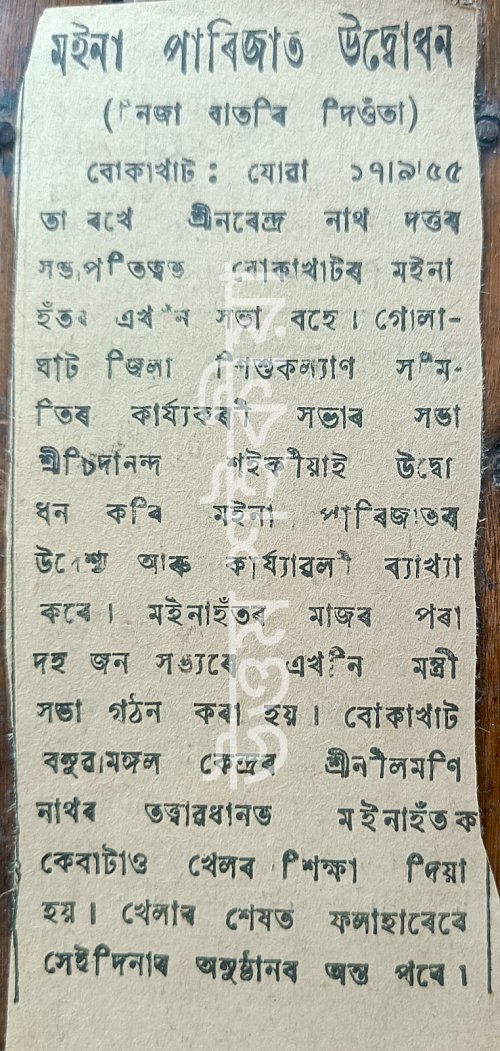 মইনা পাৰিজাত উদ্বোধন
(নিজা বাতৰি দিওঁতা)
বোকাখাট : যোৱা ১৭।৯।৫৫
তা ৰখে শ্ৰীনৰেন্দ্ৰ নাথ দত্তৰ
সভাপতিত্বত বোকাখাটৰ মইনা
হঁতৰ এখনি সভা বহে । গোলা-
ঘাট জিলা শিশুকল্যাণ সমি-
তিৰ কাৰ্য্যকৰী সভাৰ সভা
শ্ৰীচিদানন্দ শইকীয়াই উদ্বো
ধন কৰি মইনা পাৰিজাতৰ
উদ্দেশ্য আৰু কাৰ্য্যাৱলী ব্যাখ্যা
কৰে । মইনাহঁতৰ মাজৰ পৰা
দহ জন সভ্যৰে এখনি মন্ত্ৰী
সভা গঠন কৰা হয় । বোকাখাট
বহুৱামঙ্গল কেন্দ্ৰৰ শ্ৰীনীলমণি
নাথৰ তত্বাৱধানত মইনাহঁতক
কেবাটাও খেলৰ শিক্ষা দিয়া
হয় । খেলাৰ শেষত ফলাহাৰেৰে
সেইদিনাৰ অনুষ্ঠানৰ অন্ত পৰে ।
উত্তম শইকীয়া